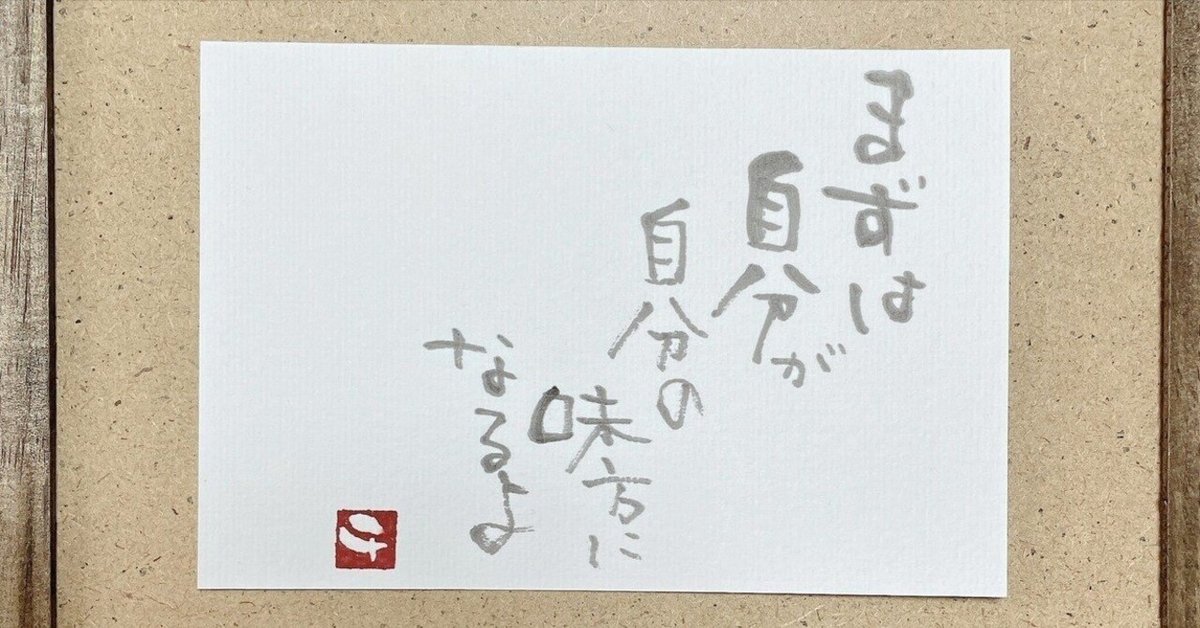 まずは
自分が
自分の
味方に
なるよ